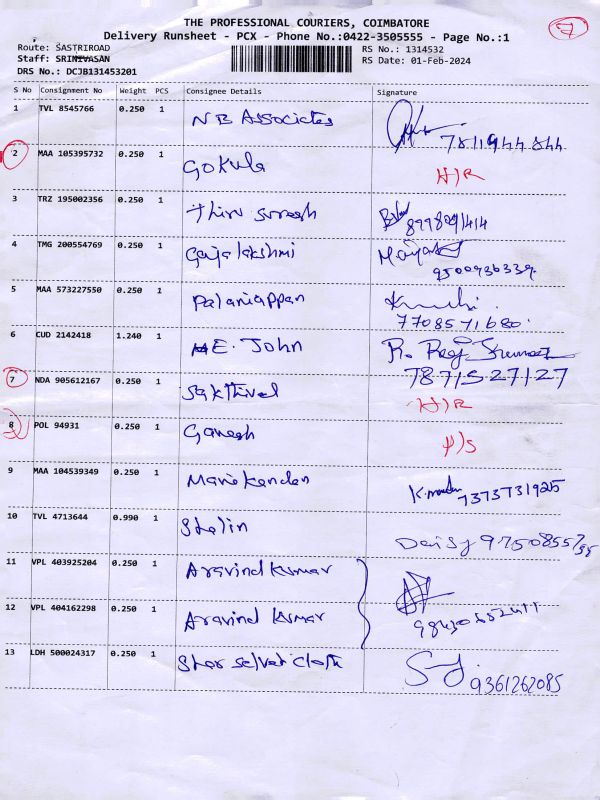 THE PROFESSIONAL COURIERS, COIMBATORE
Delivery Runsheet - PCX - Phone No.:0422-3505555 - Page No.:1
7
Route: SASTRIROAD
Staff: SRINIVASAN
DRS No.: DCJB131453201
RS No.: 1314532
RS Date: 01-Feb-2024
S No Consignment No Weight PCS Consignee Details Signature
1 TVL 8545766 0.250 1 NB Associates 7811944844
2 MAA 105395732 0.250 1 Gokula H/R
3 TRZ 195002356 0.250 1 Thiru Suresh
4 TMG 200554769 0.250 1 Gajalakshmi 9500936339
5 MAA 573227550 0.250 1 Palaniappan 7708571680
6 CUD 2142418 1.240 1 E. John 7871527127
7 NDA 905612167 0.250 1 Sakthivel H/R
8 POL 94931 0.250 1 Ganesh P/S
9 MAA 104539349 0.250 1 Manikandan 7373731925
10 TVL 4713644 0.990 1 Stalin Daisy
11 VPL 403925204 0.250 1 Aravind Kumar
12 VPL 404162298 0.250 1 Aravind Kumar
13 LDH 500024317 0.250 1 Star selvati cloth 9361262085